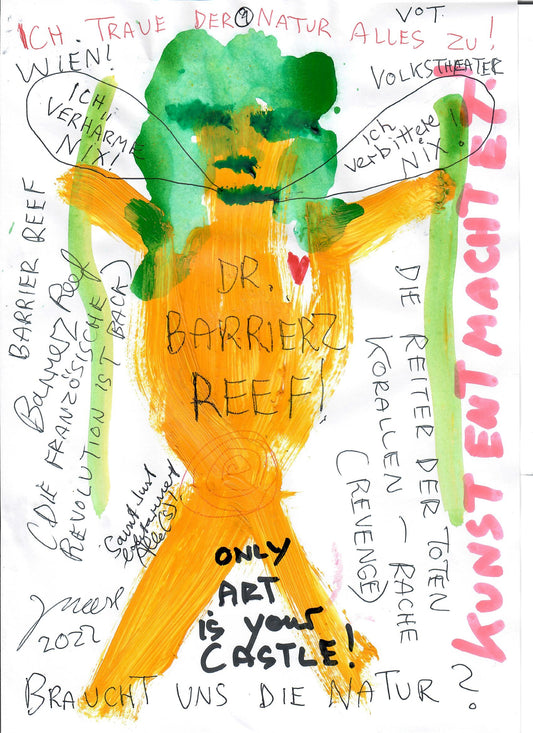 ICH TRAUE DER NATUR ALLES ZU!
1
WIEN!
VOT.
VOLKSTHEATER
ICH
VERHARME
NIX!
ich
verbittere
NIX!
KUNST ENTMACHTET.
DR.
BARRIERZ
REEF!
BARRIER REEF
(DIE FRANZÖSISCHE
REVOLUTION IST BACK)
Saint Just
Alle(s)!
DIE REITER DER TOTEN
KORALLEN – RACHE
(REVENGE)
ONLY
ART
is your
CASTLE!
Meese
2022
BRAUCHT UNS DIE NATUR?